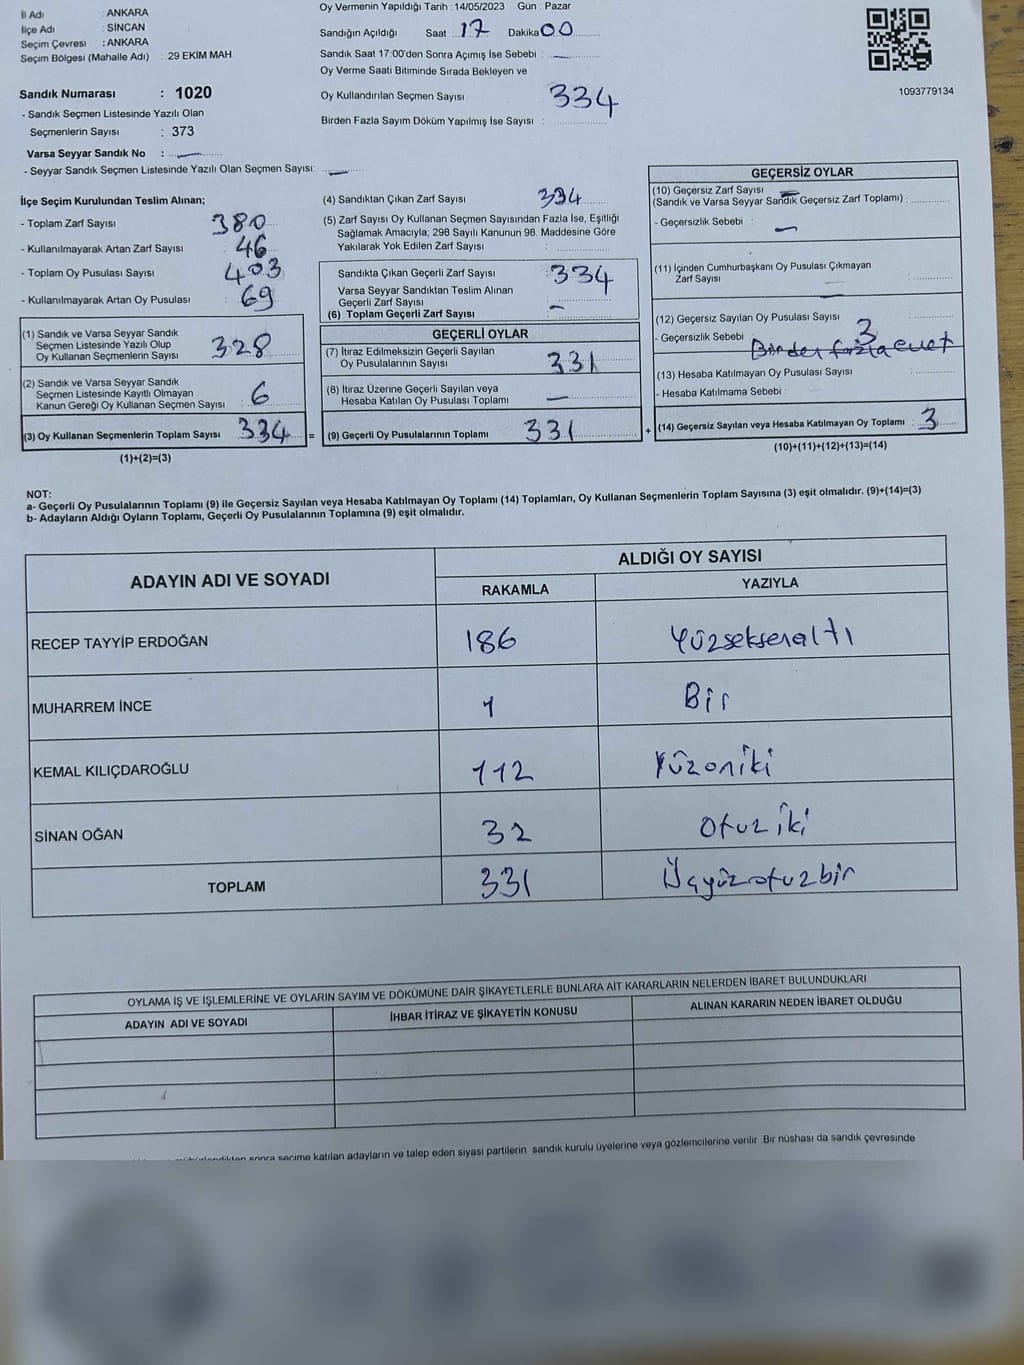 İl Adı : ANKARA
İlçe Adı : SİNCAN
Seçim Çevresi : ANKARA
Seçim Bölgesi (Mahalle Adı) : 29 EKİM MAH
Sandık Numarası : 1020
- Sandık Seçmen Listesinde Yazılı Olan
Seçmenlerin Sayısı : 373
Varsa Seyyar Sandık No : —
- Seyyar Sandık Seçmen Listesinde Yazılı Olan Seçmen Sayısı: —
Oy Vermenin Yapıldığı Tarih : 14/05/2023 Gün : Pazar
Sandığın Açıldığı Saat 17 Dakika 00
Sandık Saat 17:00'den Sonra Açımış İse Sebebi : —
Oy Verme Saati Bitiminde Sırada Bekleyen ve
Oy Kullandırılan Seçmen Sayısı 334
Birden Fazla Sayım Döküm Yapılmış İse Sayısı :
1093779134
İlçe Seçim Kurulundan Teslim Alınan;
- Toplam Zarf Sayısı 380
- Kullanılmayarak Artan Zarf Sayısı 46
- Toplam Oy Pusulası Sayısı 403
- Kullanılmayarak Artan Oy Pusulası : 69
(1) Sandık ve Varsa Seyyar Sandık
Seçmen Listesinde Yazılı Olup
Oy Kullanan Seçmenlerin Sayısı 328
(2) Sandık ve Varsa Seyyar Sandık
Seçmen Listesinde Kayıtlı Olmayan
Kanun Gereği Oy Kullanan Seçmen Sayısı : 6
(3) Oy Kullanan Seçmenlerin Toplam Sayısı 334 =
(1)+(2)=(3)
(4) Sandıktan Çıkan Zarf Sayısı 334
(5) Zarf Sayısı Oy Kullanan Seçmen Sayısından Fazla İse, Eşitliği
Sağlamak Amacıyla; 298 Sayılı Kanunun 98. Maddesine Göre
Yakılarak Yok Edilen Zarf Sayısı :
Sandıkta Çıkan Geçerli Zarf Sayısı : 334
Varsa Seyyar Sandıktan Teslim Alınan
Geçerli Zarf Sayısı : —
(6) Toplam Geçerli Zarf Sayısı :
GEÇERLİ OYLAR
(7) İtiraz Edilmeksizin Geçerli Sayılan
Oy Pusulalarının Sayısı : 331
(8) İtiraz Üzerine Geçerli Sayılan veya
Hesaba Katılan Oy Pusulası Toplamı : —
(9) Geçerli Oy Pusulalarının Toplamı 331 +
GEÇERSİZ OYLAR
(10) Geçersiz Zarf Sayısı —
(Sandık ve Varsa Seyyar Sandık Geçersiz Zarf Toplamı) :
- Geçersizlik Sebebi : —
(11) İçinden Cumhurbaşkanı Oy Pusulası Çıkmayan
Zarf Sayısı : —
(12) Geçersiz Sayılan Oy Pusulası Sayısı : 3
- Geçersizlik Sebebi : Birden fazla evet
(13) Hesaba Katılmayan Oy Pusulası Sayısı :
- Hesaba Katılmama Sebebi :
(14) Geçersiz Sayılan veya Hesaba Katılmayan Oy Toplamı : 3
(10)+(11)+(12)+(13)=(14)
NOT:
a- Geçerli Oy Pusulalarının Toplamı (9) ile Geçersiz Sayılan veya Hesaba Katılmayan Oy Toplamı (14) Toplamları, Oy Kullanan Seçmenlerin Toplam Sayısına (3) eşit olmalıdır. (9)+(14)=(3)
b- Adayların Aldığı Oyların Toplamı, Geçerli Oy Pusulalarının Toplamına (9) eşit olmalıdır.
ADAYIN ADI VE SOYADI ALDIĞI OY SAYISI
RAKAMLA YAZIYLA
RECEP TAYYİP ERDOĞAN 186 Yüzseksenaltı
MUHARREM İNCE 1 Bir
KEMAL KILIÇDAROĞLU 112 Yüzoniki
SİNAN OĞAN 32 Otuz iki
TOPLAM 331 Üçyüzotuzbir
OYLAMA İŞ VE İŞLEMLERİNE VE OYLARIN SAYIM VE DÖKÜMÜNE DAİR ŞİKAYETLERLE BUNLARA AİT KARARLARIN NELERDEN İBARET BULUNDUKLARI
ADAYIN ADI VE SOYADI İHBAR İTİRAZ VE ŞİKAYETİN KONUSU ALINAN KARARIN NEDEN İBARET OLDUĞU
sonra seçime katılan adayların ve talep eden siyasi partilerin sandık kurulu üyelerine veya gözlemcilerine verilir. Bir nüshası da sandık çevresinde